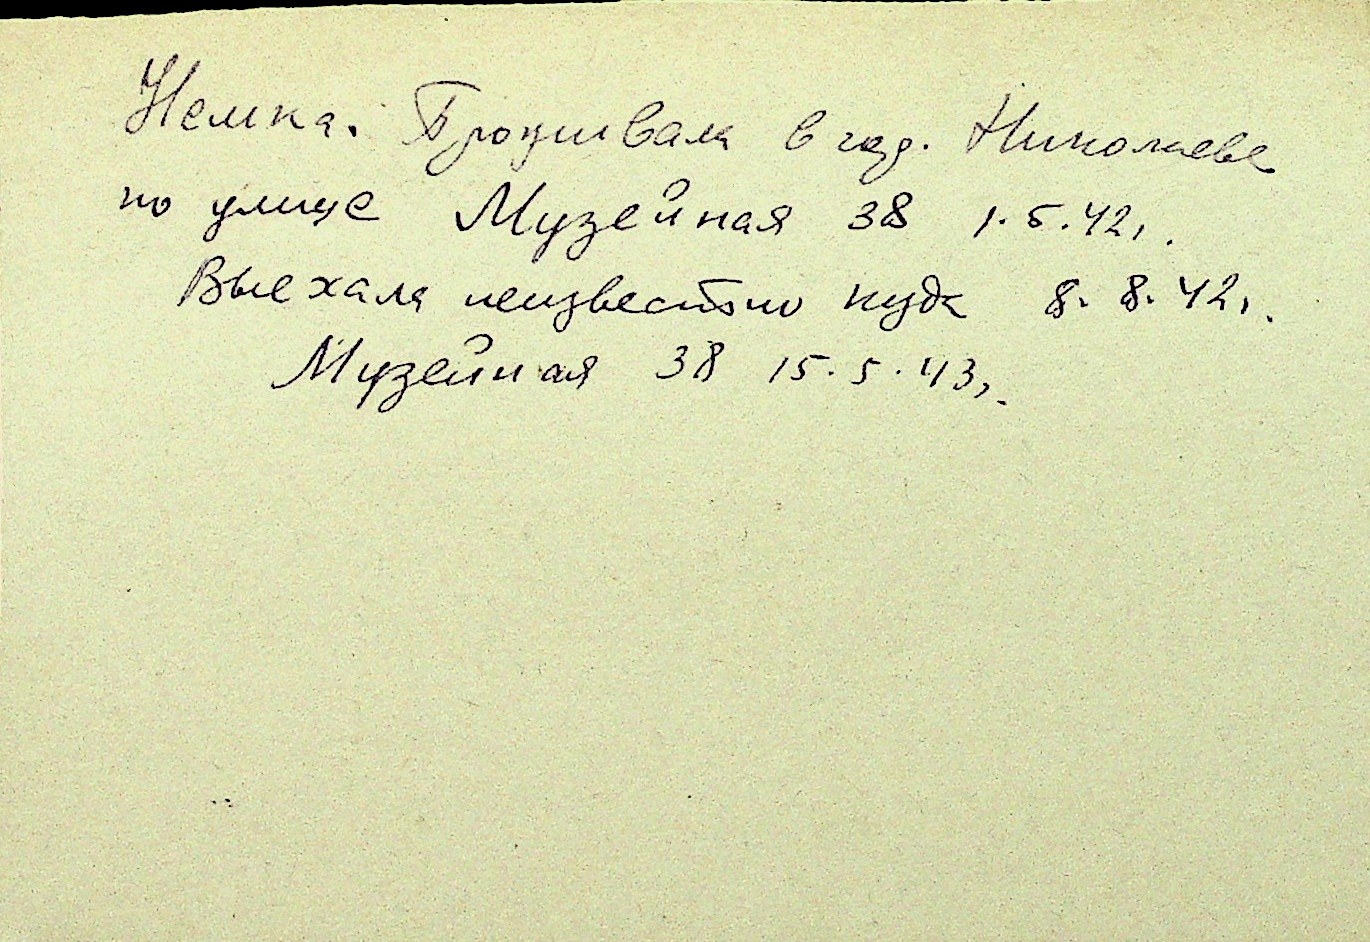 Немка. Проживала в гор. Николаеве
по улице Музейная 38 1.5.42г.
Выехала неизвестно куда 8.8.42г.
Музейная 38 15.5.43г.